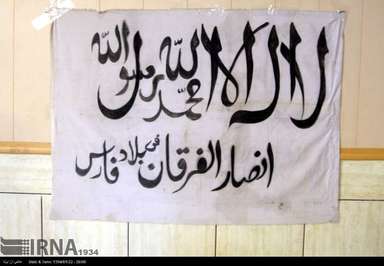 لا اله الا الله محمد رسول الله
انصار الفرقان في بلاد فارس
IRNA 1934